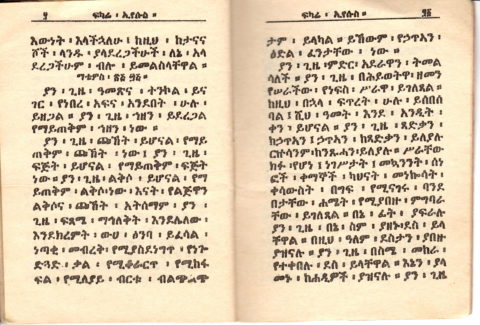 ፶ ፍካሬ ፡ ኢየሱስ ።
እውነት ፡ እላችኋለሁ ፤ ከዚህ ፡ ከታናና
ሾች ፡ ላንዱ ፡ ያላደረጋችሁት ፡ ለኔ ፡ አላ
ደረጋችሁም ፡ ብሎ ፡ ይመልስላቸዋል ።
ያን ፡ ጊዜ ፡ ዓመጽና ፡ ተንኰል ፡ ይና
ገር ፡ የነበረ ፡ አፍና ፡ አንደበት ፡ ሁሉ ፡
ይዘጋል ። ያን ፡ ጊዜ ፡ ኀዘን ፡ ይደረጋል
የማይጠቅም ፡ ኀዘን ፡ ነው ።
ያን ፡ ጊዜ ፡ ጩኸት ፡ ይሆናል ፡ የማይ
ጠቅም ፡ ጩኸት ፡ ነው ፤ ያን ፡ ጊዜ ፡
ፍጅት ፡ ይሆናል ፡ የማይጠቅም ፡ ፍጅት
ነው ። ያን ፡ ጊዜ ፡ ልቅሶ ፡ ይሆናል ፡ የማ
ይጠቅም ፡ ልቅሶ ፡ ነው ፡ እናት ፡ የልጅዋን
ልቅሶና ፡ ጩኸት ፡ አትሰማም ፡ ያን ፡
ጊዜ ፡ ፍጻሜ ፡ ማዕለቅት ፡ እንደሌለው ፡
እንደክረምት ፡ ውሀ ፡ ዕንባ ፡ ይፈባል ፡
ነጣቂ ፡ መብረቅ ፡ የሚያስደነግጥ ፡ የነጐ
ድጓድ ፡ ቃል ፡ የሚቈራርጥ ፡ የሚከፋ
ፍል ፡ የሚለያይ ፡ ብርቱ ፡ ብልጭጭ
ፍካሬ ፡ ኢየሱስ ።
ታም ፡ ይላካል ። ይኸውም ፡ የኃጥአን ፡
ዕድል ፡ ፈንታቸው ፡ ነው ።
ያን ፡ ጊዜ ፡ ምድር ፡ አደራዋን ፡ ትመል
ሳለች ። ያን ፡ ጊዜ ፡ በሕይወትዋ ፡ ዘመን
የሠራችው ፡ የነፍስ ፡ ሥራዋ ፡ ይገለጻል ።
ከዚህ ፡ በኋላ ፡ ፍጥረት ፡ ሁሉ ፡ ይሰበሰ
ባል ፤ ሺህ ፡ ዓመት ፡ እንደ ፡ አንዲት ፡
ቀን ፡ ይሆናል ። ያን ፡ ጊዜ ፡ ጻድቃን ፡
ከኃጥአን ፤ ኃጥአን ፡ ከጻድቃን ፡ ይለያሉ
ርኩሳንም ፡ ከንጹሓን ፡ ይለያሉ ። ሥራቸው
ክፉ ፡ የሆነ ፤ ነገሥታት ፤ መኳንንት ፡ ሰነ
ፎች ፡ ቀማኞች ፡ ካህናት ፡ መነኰሳት ፡
ቀሳውስት ፡ በግፍ ፡ የሚናገሩ ፡ ባንደ
በታቸው ፡ ሐሜት ፡ የሚያበዙ ፡ ምግባራ
ቸው ፡ ይገለጻል ። በኔ ፡ ፊት ፡ ያፍራሉ
ያን ፡ ጊዜ ፡ በኔ ፡ ስም ፡ ያዘኑ ፡ ደስ ፡ ይላ
ቸዋል ። በዚህ ፡ ዓለም ፡ ደስታን ፡ ያበዙ
ያዝናሉ ። ያን ፡ ጊዜ ፡ በስሜ ፡ መከራ ፡
የተቀበሉ ፡ ደስ ፡ ይላቸዋል ። እኔን ፡ ያላ
መኑ ፡ ከሐዲዎች ፡ ያዝናሉ ። ያን ፡ ጊዜ